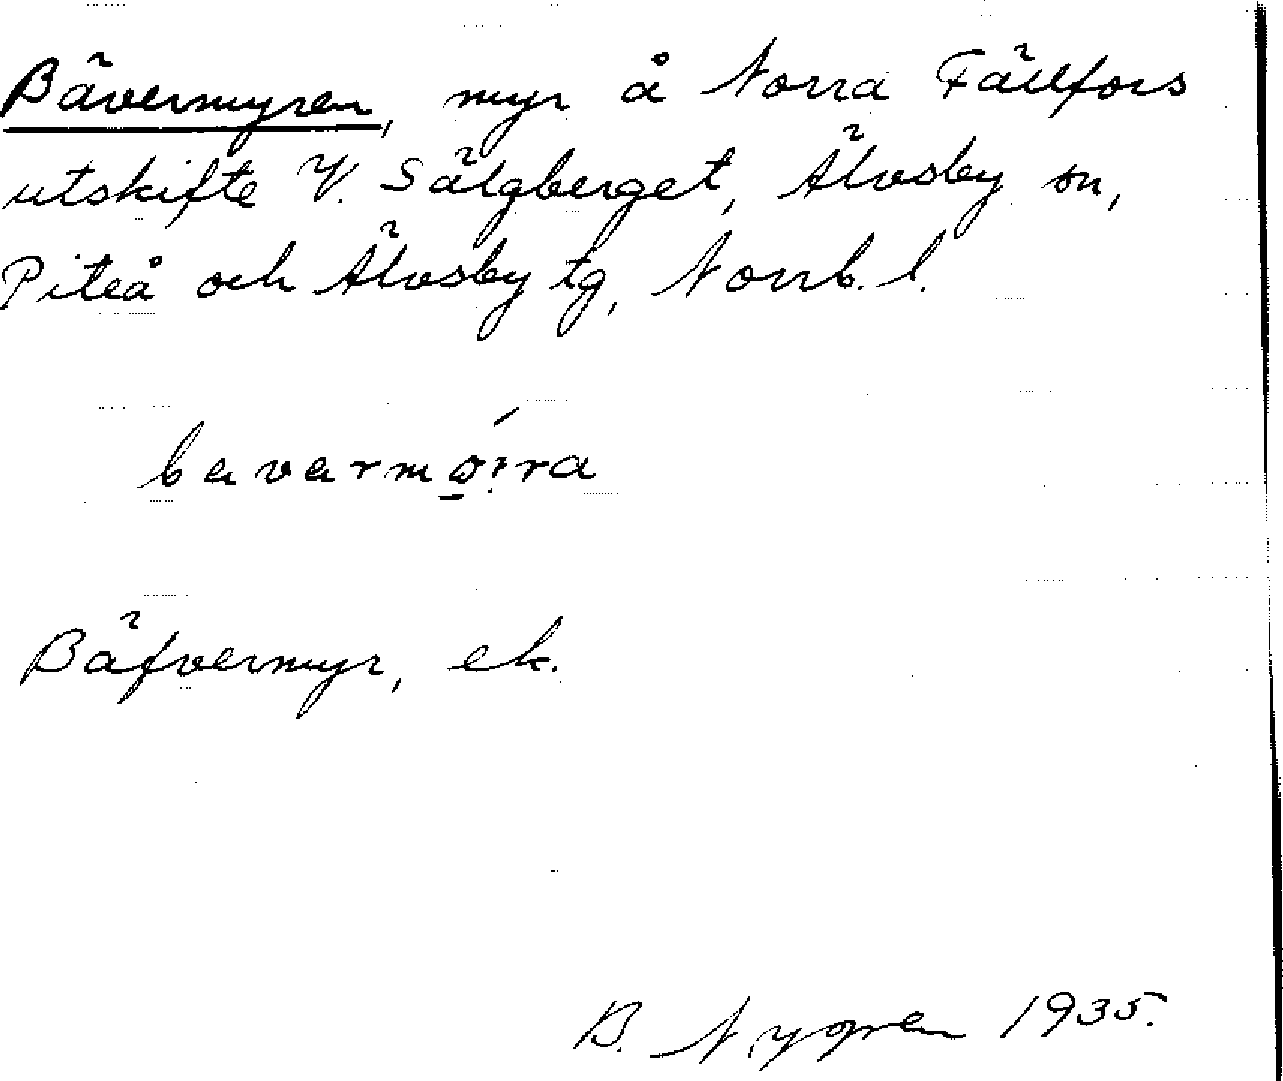 Bävermyren, myr å Norra Fällfors
utskifte V. Sälgberget, Älvsby sn,
Piteå och Älvsby tg, Norrb. l.
bavarmø̱íra
Bäfvermyr, ek.
B. Nygren 1935.